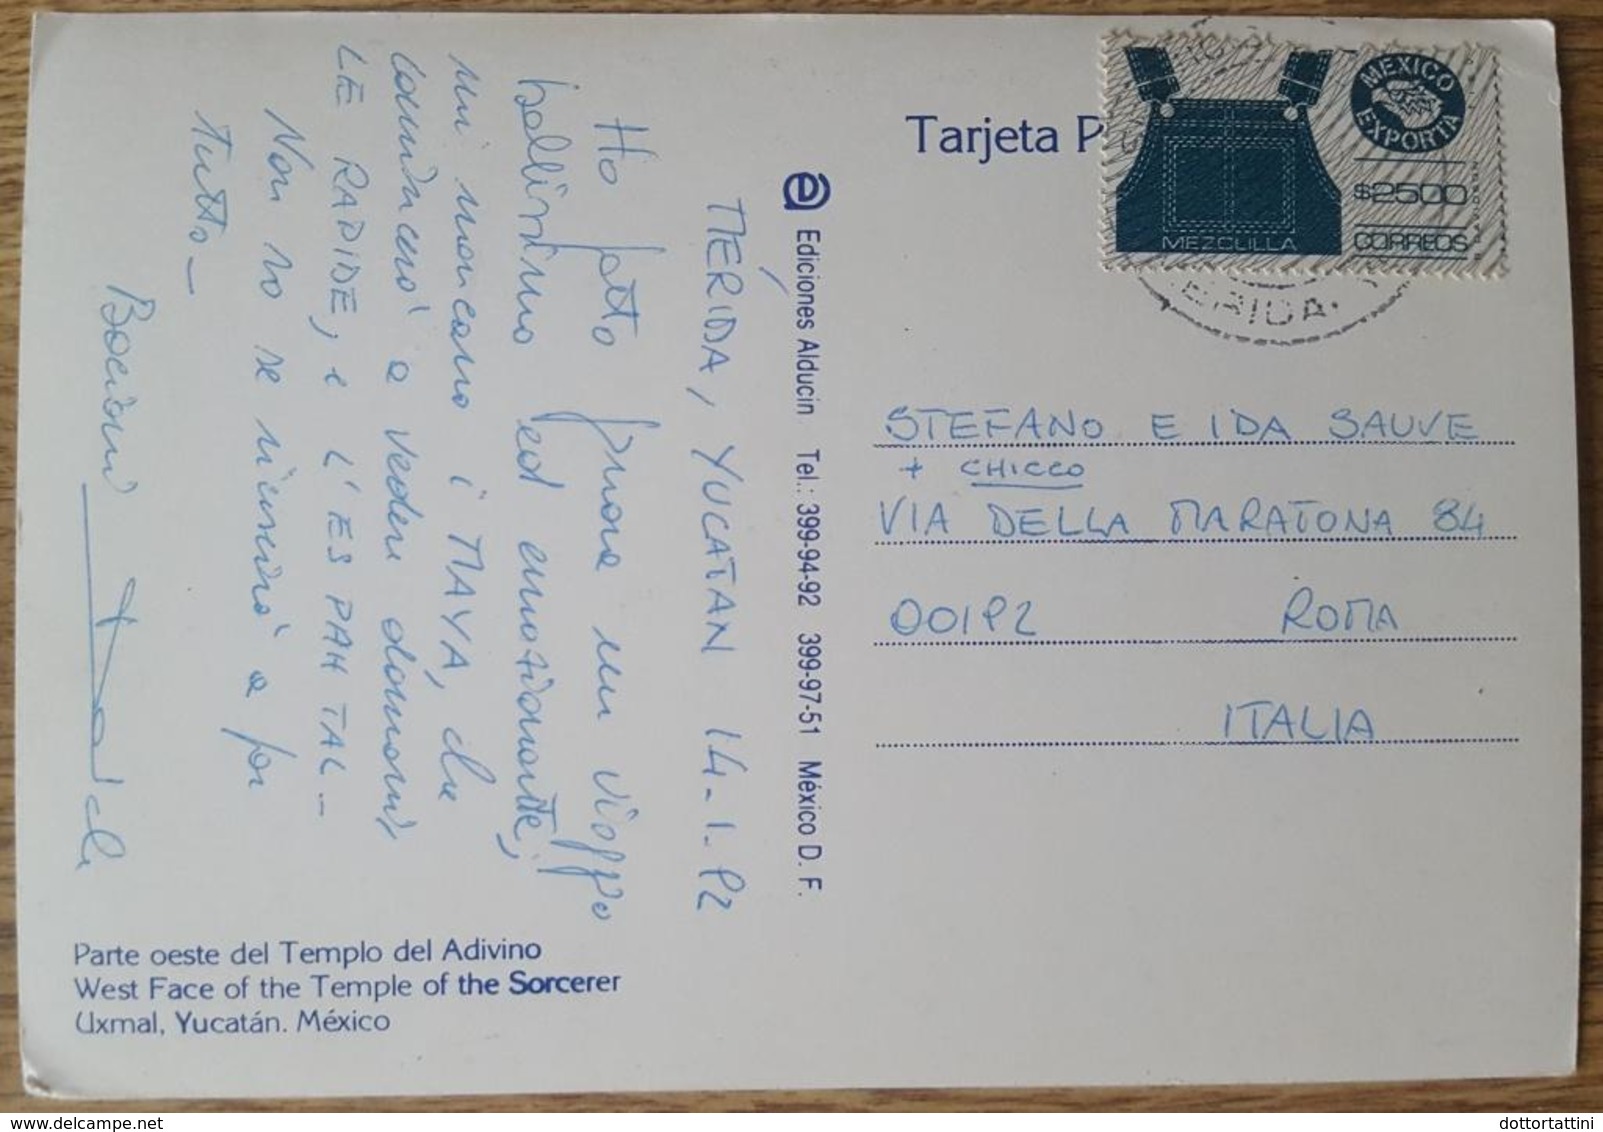 Tarjeta P
MEXICO
EXPORTA
$2500
CORREOS
MEZCLILLA
MERIDA.
Ediciones Alducin Tel.: 399-94-92 399-97-51 México D. F.
MÉRIDA, YUCATAN 14-1-92
Ho fatto finora un viaggio
bellissimo ed emozionante,
mi mancano i MAYA, che
comincerò a vedere domani,
LE RADIDE, e L'ES PAH TAL-
Non so se riuscirò a far
tutto-
Bacioni
STEFANO E IDA SAUVE
+ CHICCO
VIA DELLA MARATONA 84
00192 ROMA
ITALIA
Parte oeste del Templo del Adivino
West Face of the Temple of the Sorcerer
Uxmal, Yucatán. México
dottortattini